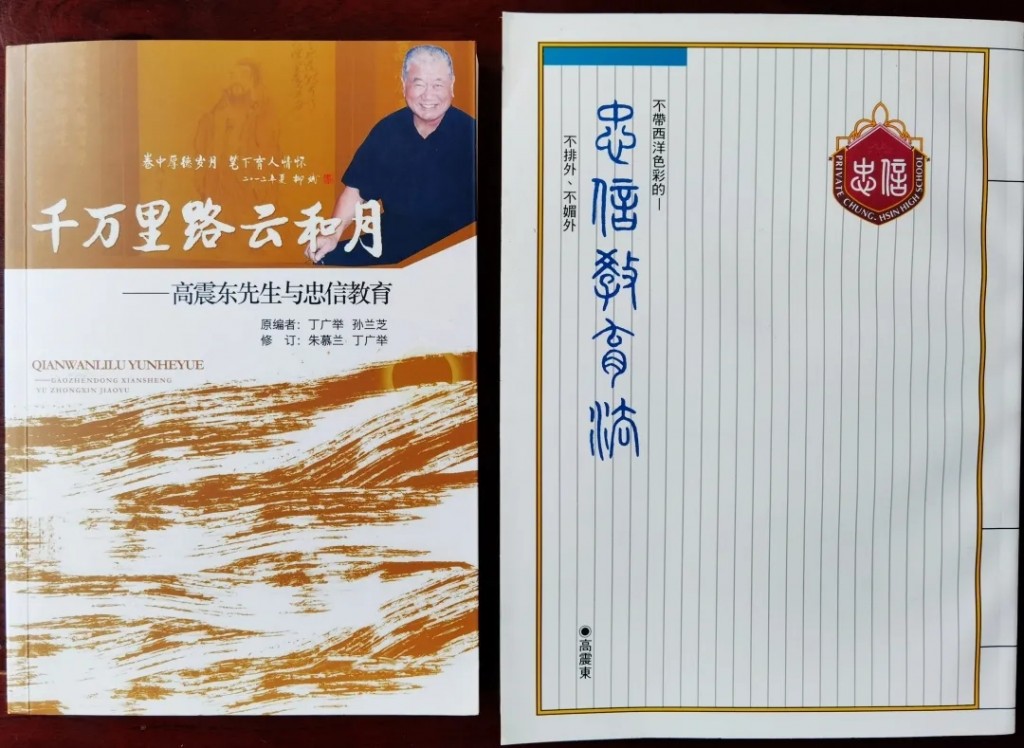 卷中厚报岁月 笔下育人情怀
二〇一二年夏 柳斌
千万里路云和月
——高震东先生与忠信教育
原编者：丁广举 孙兰芝
修 订：朱慕兰 丁广举
QIANWANLILU YUNHEYUE
——GAOZHENDONG XIANSHENG
YU ZHONGXIN JIAOYU
不帶西洋色彩的—
忠信教育法
不排外、不媚外
◉高震東
忠信
PRIVATE CHUNG. HSIN HIGH SCHOOL